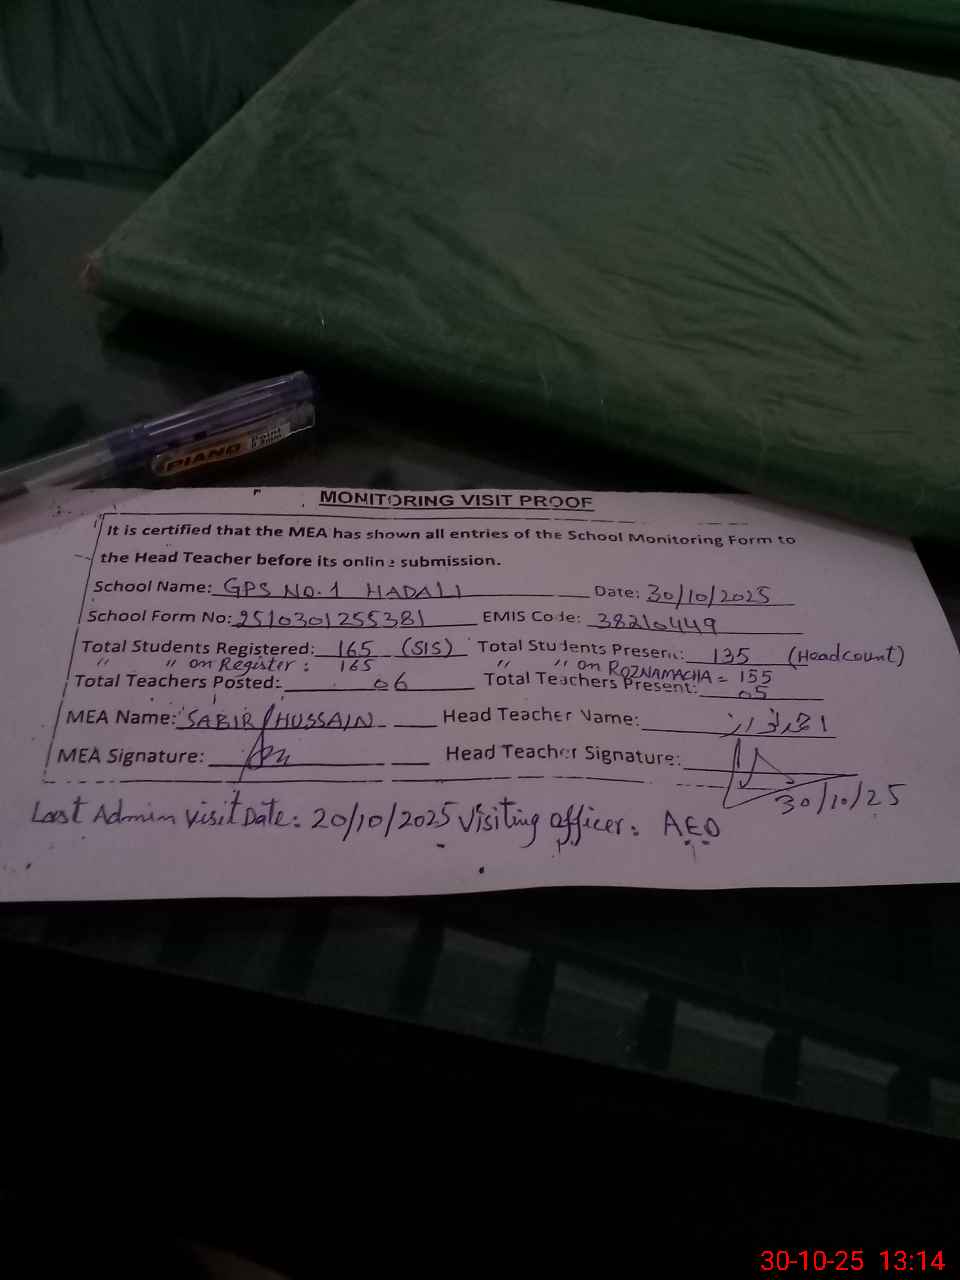 PIANO
Point
MONITORING VISIT PROOF
It is certified that the MEA has shown all entries of the School Monitoring Form to
the Head Teacher before its online submission.
School Name: GPS NO.1 HADALI Date: 30/10/2025
School Form No: 2510301255381 EMIS Code: 38210449
Total Students Registered: 165 (SIS) Total Students Present: 135 (Headcount)
" " on Register: 165 " " on ROZNAMACHA = 155
Total Teachers Posted: 06 Total Teachers Present: 05
MEA Name: SABIR HUSSAIN Head Teacher Name:
MEA Signature: Head Teacher Signature:
30/10/25
Last Admin Visit Date: 20/10/2025 Visiting officer: AEO
30-10-25 13:14